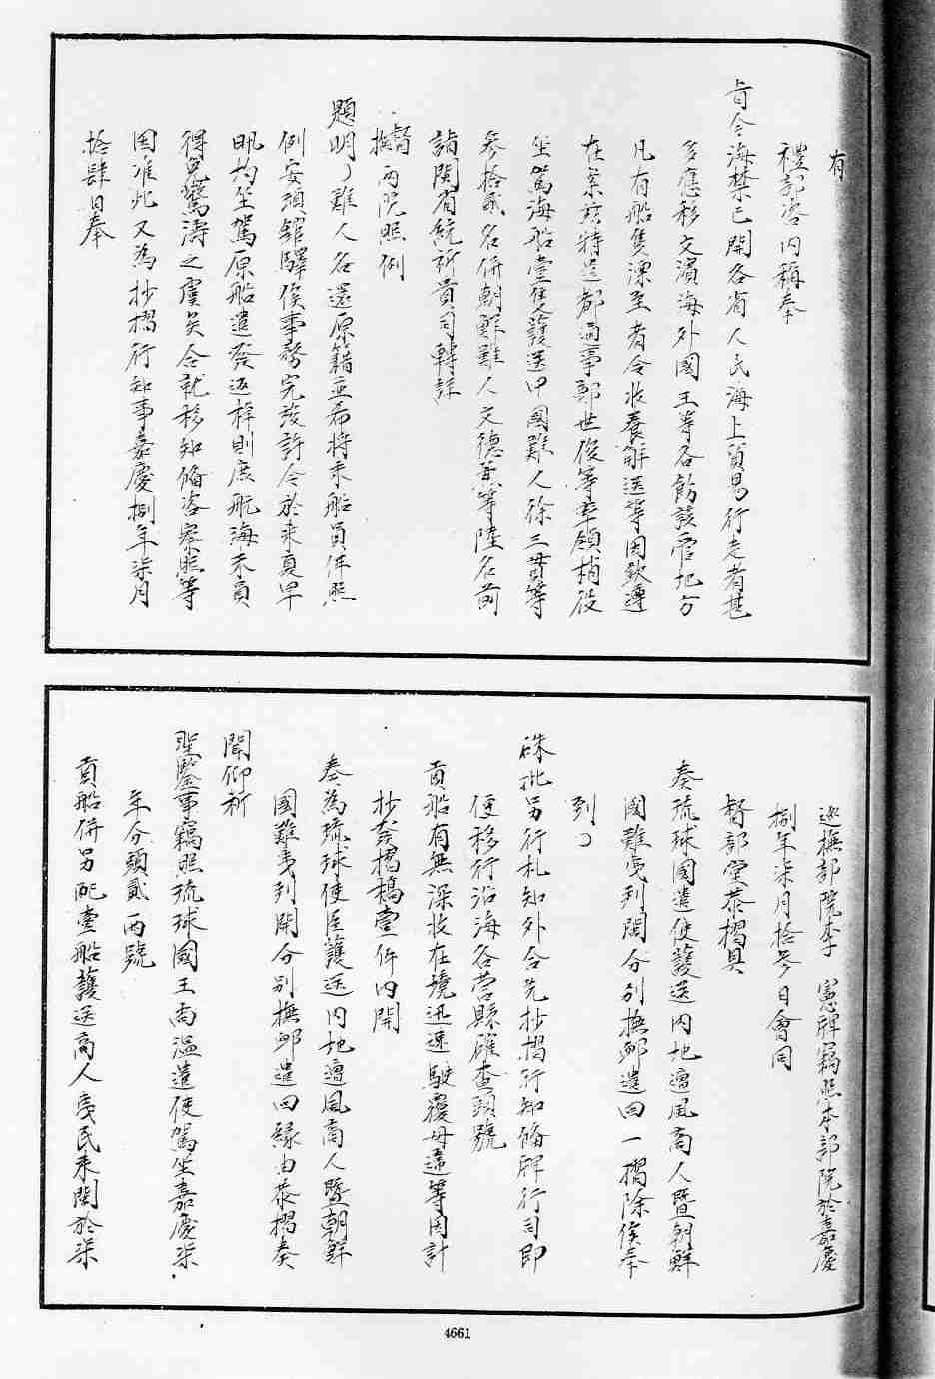 有
禮部咨內稱奉
旨今海禁已開各省人民海上貿易行走者甚
多應移文濱海外國王等各飭該管地方
凡有船隻漂至者令收養解送等因欽遵
在案茲特遣都通事鄭世俊等率領梢役
坐駕海船壹隻護送中國難人徐三貫等
參拾貳名併朝鮮難人文德兼等陸名前
詣閩省統祈貴司轉詳
督
撫兩院照例
題明難人各還原籍並希將來船員伴照
例安頓館驛俟事務完竣許令於來夏早
帆均坐駕原船遣發返棹則庶航海末員
得免驚濤之虞矣合就移知備咨察照等
因准此又為抄摺行知事嘉慶捌年柒月
拾肆日奉
巡撫部院李 憲牌竊照本部院於嘉慶
捌年柒月拾參日會同
督部堂恭摺具
奏琉球國遣使護送內地遭風商人暨朝鮮
國難夷到閩分別撫卹遣回一摺除俟奉
到
硃批另行札知外合先抄摺行知備牌行司即
便移行沿海各營縣確查頭號
貢船有無深收在境迅速駛覆毋違等因計
抄發摺稿壹件內開
奏為琉球使臣護送內地遭風商人暨朝鮮
國難夷到閩分別撫卹遣回緣由恭摺奏
聞仰祈
聖鑒事竊照琉球國王尚溫遣使駕坐嘉慶柒
年分頭貳兩號
貢船併另配壹船護送商人夷民來閩於柒
4661